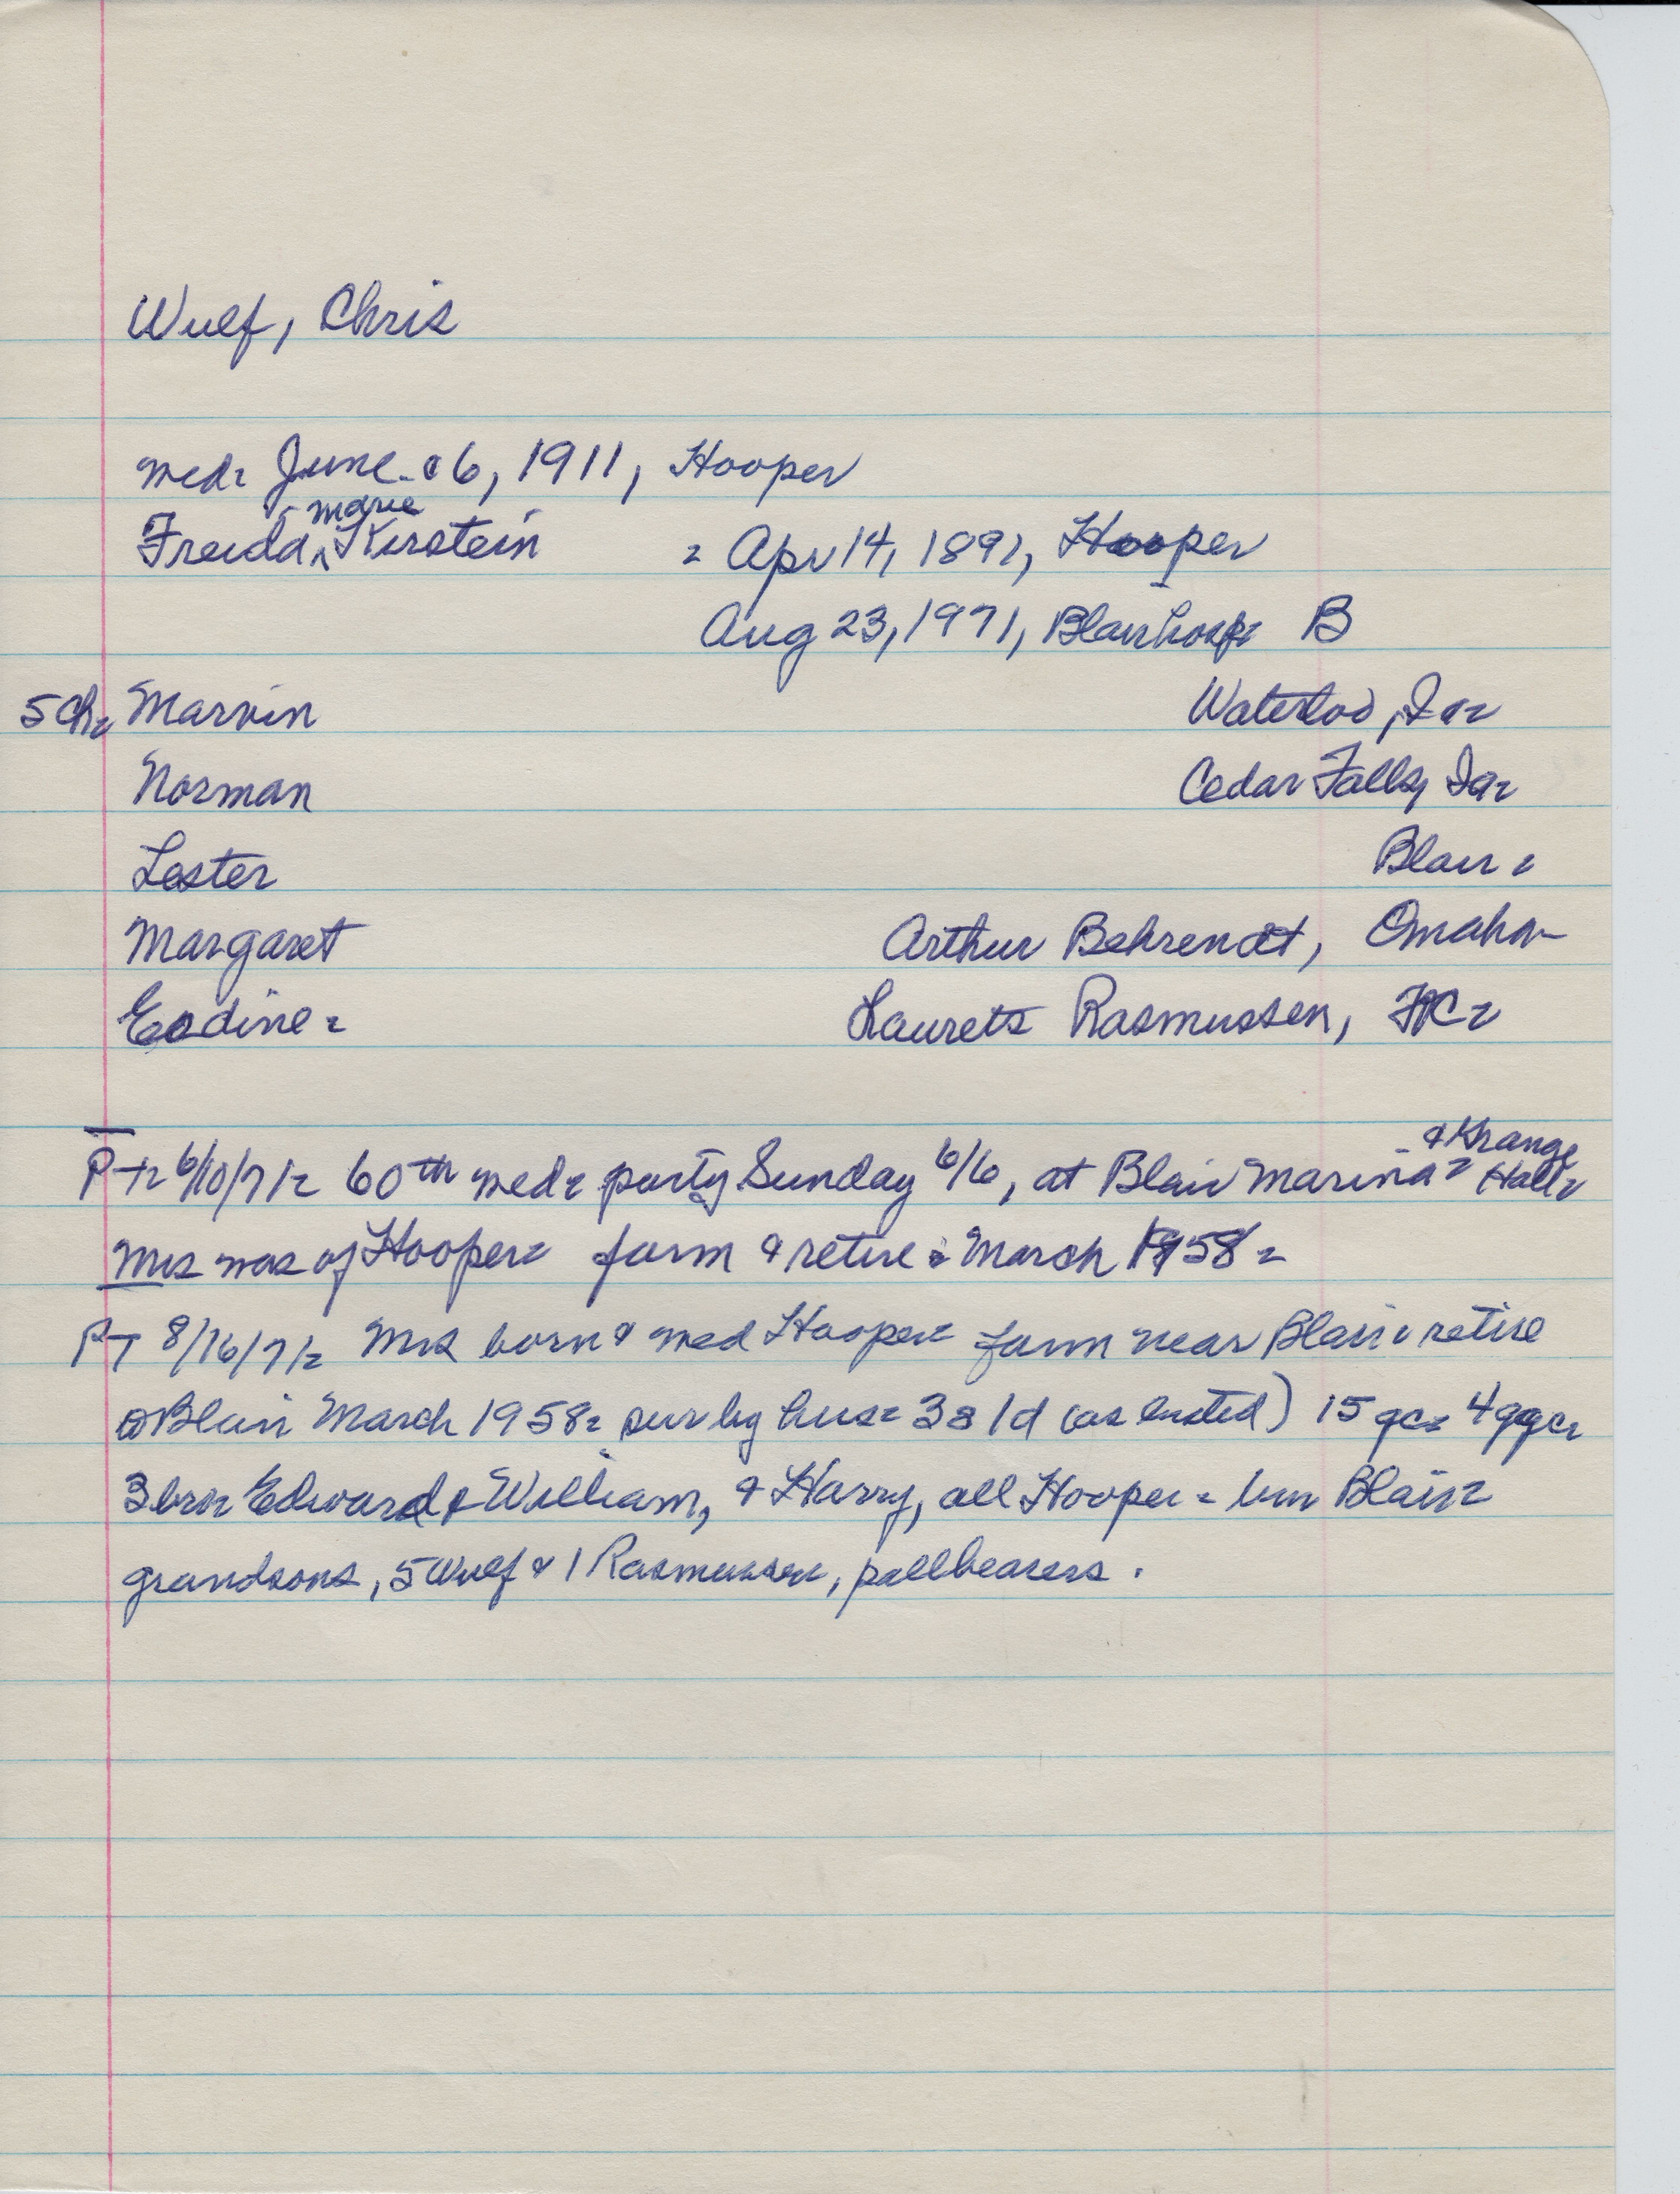 Wulf, Chris
wed. June 6, 1911, Hooper
Freida Marie Kirstein = Apr 14, 1891, Hooper
Aug 23, 1971, Blair hosp. B
5 ch. Marvin Waterloo, Ia.
Norman Cedar Falls, Ia.
Lester Blair.
Margaret Arthur Behrendt, Omaha
Eodine. Lauretz Rasmussen, FtC.
PT. 6/10/71. 60th wed. party Sunday 6/6, at Blair Marina & Krange Hall.
Mrs was of Hooper. farm & retire. March 1958.
PT 8/16/71. Mrs born & wed Hooper. farm near Blair. retire
Blair March 1958. sur by hus. 3s 1d (as listed) 15 gc. 4 ggc.
3 bro. Edward & William, & Harry, all Hooper. bur Blair.
grandsons, 5 Wulf & 1 Rasmussen, pallbearers.